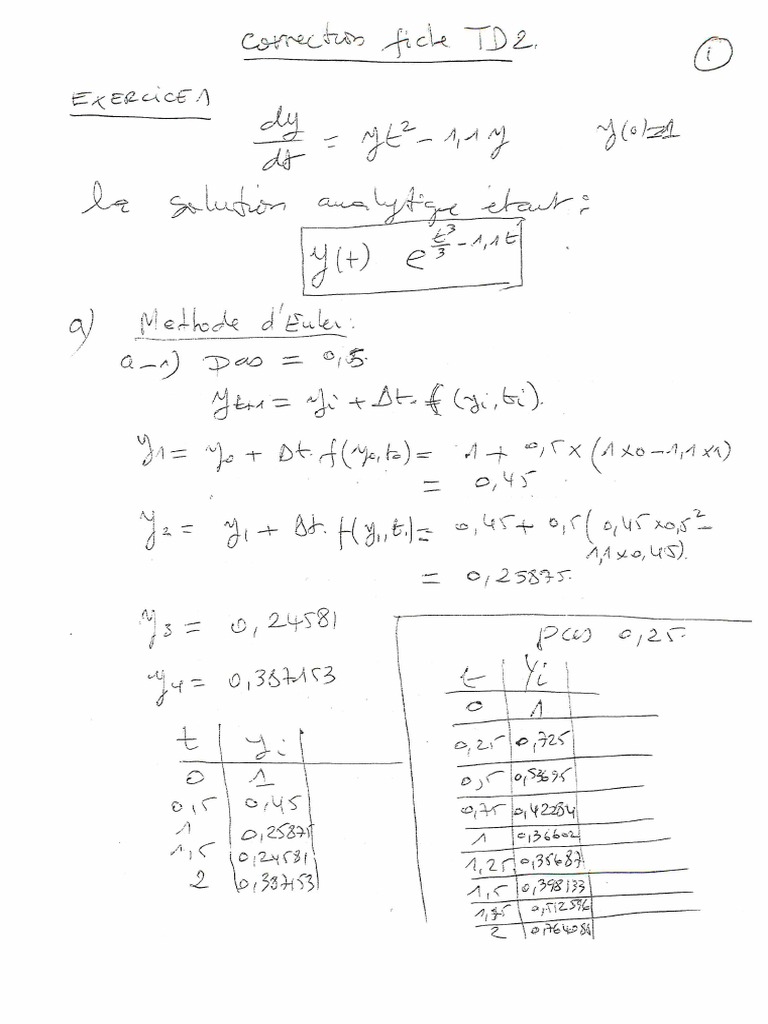 Correction fiche TD2.
1
EXERCICE 1
dy/dt = yt² - 1,1y    y(0)=1
la solution analytique étant :
y(t) e^(t³/3 - 1,1t)
a) Methode d'Euler :
a-1) Pas = 0,5.
y_{t+1} = y_i + Δt. f(y_i, t_i).
y_1 = y_0 + Δt. f(y_0, t_0) = 1 + 0,5 × (1×0 - 1,1×1)
= 0,45
y_2 = y_1 + Δt. f(y_1, t_1) = 0,45 + 0,5 ( 0,45 × 0,5² -
1,1×0,45).
= 0,25875.
y_3 = 0,24581
y_4 = 0,387153
t | y_i
0 | 1
0,5 | 0,45
1 | 0,25875
1,5 | 0,24581
2 | 0,387153
pas 0,25.
t | Y_i
0 | 1
0,25 | 0,725
0,5 | 0,53695
0,75 | 0,42284
1 | 0,36602
1,25 | 0,35687
1,5 | 0,398133
1,75 | 0,512596
2 | 0,764088